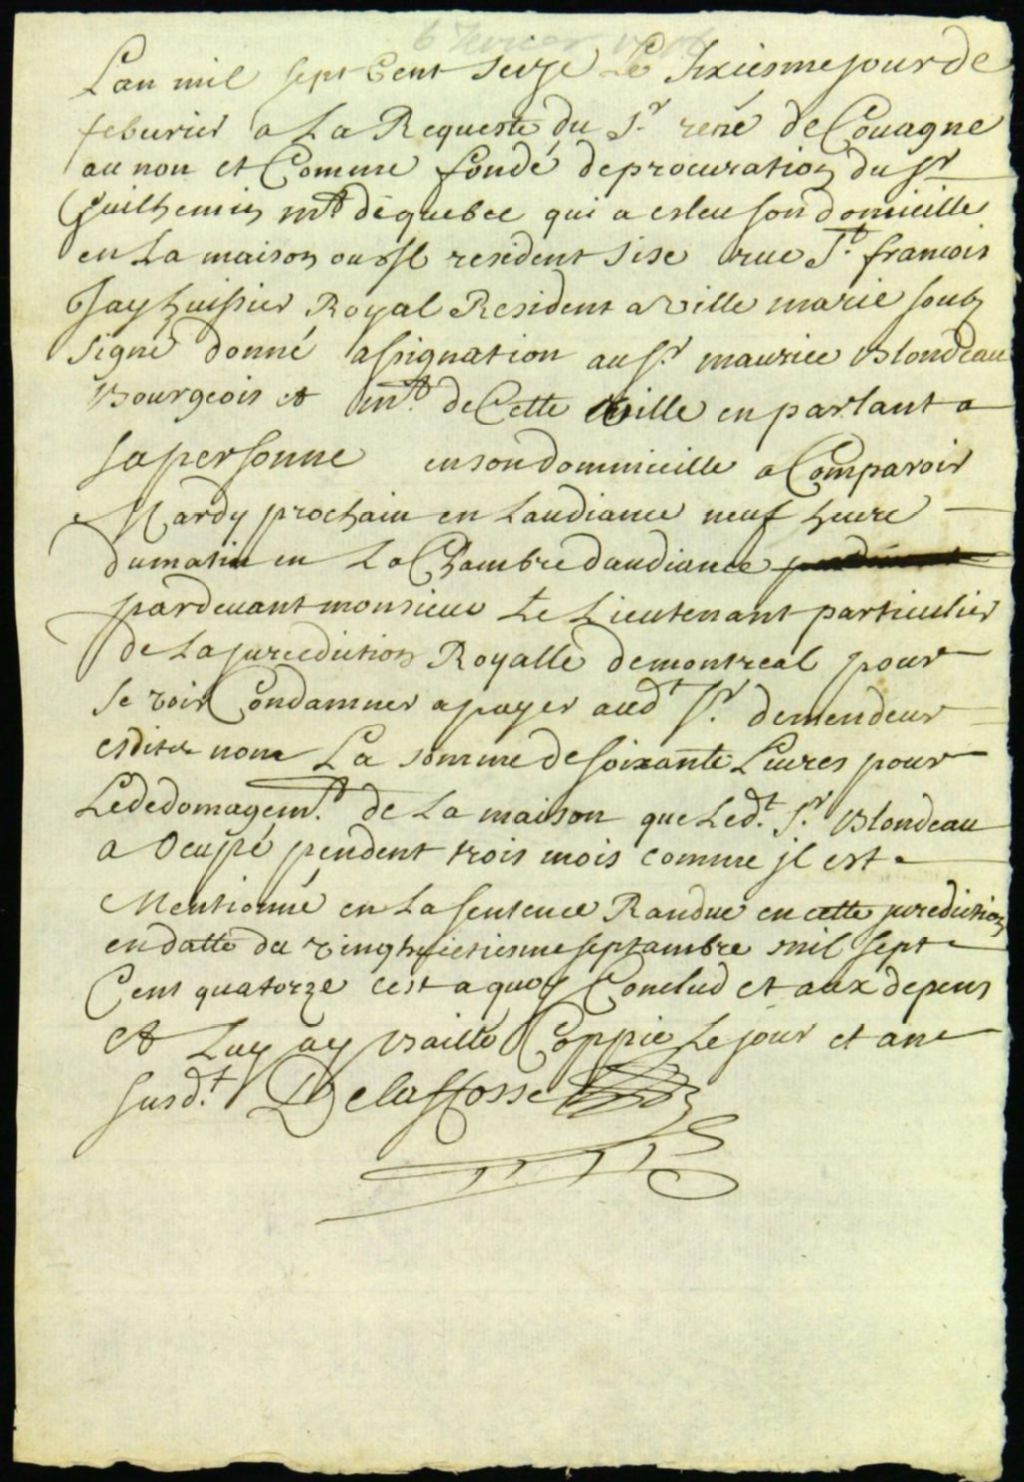 6 fevrier 1716
Lan mil sept Cent seize Le sixiesme jour de
feburier a La Requeste du Sr. rené de Couagne
au non et Comme fondé de procuration du Sr
Guilhemin mt dequebec qui a esleu son domicille
en La maison ou Jl resident sise rue St. francois
Jay huissier Royal Resident a ville marie soubz
signé donné assignation au Sr. maurice Blondeau
Bourgeois et mt. de Cette ville en parlant a
sa personne en son dommicille a Comparoir
Mardy prochain en Laudiance neuf heure
du matin en La Chambre daudiance
pardevant monsieur Le Lieutenant particulier
de La juredition Royalle demontreal pour
se voir Condamner a payer aud't Sr. demendeur
esdits nom La somme de soixante Livres pour
Le dedomagemt. de La maison que Led.t Sr. Blondeau
a Ocupé pendent trois mois comme jl est
Mentionné en La sentence Randue en cette jurediction
en datte du vingthuictiesme septambre mil sept
Cent quatorze cest a quoy Conclud et aux depens
et Luy ay Baillé Coppie Le jour et an
susd.t Delafosse